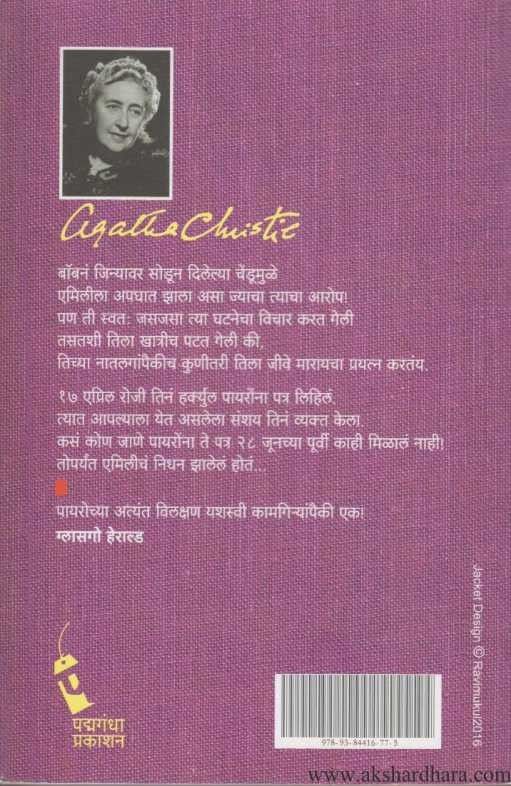 Agatha Christie
बॉबनं जिन्यावर सोडून दिलेल्या चेंडूमुळे
एमिलीला अपघात झाला असा ज्याचा त्याचा आरोप!
पण ती स्वतः जसजसा त्या घटनेचा विचार करत गेली
तसतशी तिला खात्रीच पटत गेली की,
तिच्या नातलगांपैकीच कुणीतरी तिला जीवे मारायचा प्रयत्न करतंय.
१७ एप्रिल रोजी तिनं हर्क्युल पायरोंना पत्र लिहिलं.
त्यात आपल्याला येत असलेला संशय तिनं व्यक्त केला.
कसं कोण जाणे पायरोंना ते पत्र २८ जूनच्या पूर्वी काही मिळालं नाही!
तोपर्यंत एमिलीचं निधन झालेलं होतं...
पायरोच्या अत्यंत विलक्षण यशस्वी कामगिऱ्यांपैकी एक!
ग्लासगो हेराल्ड
Jacket Design © Ravimukul/2016
पद्मगंधा
प्रकाशन
978-93-84416-77-5
www.akshardhara.com